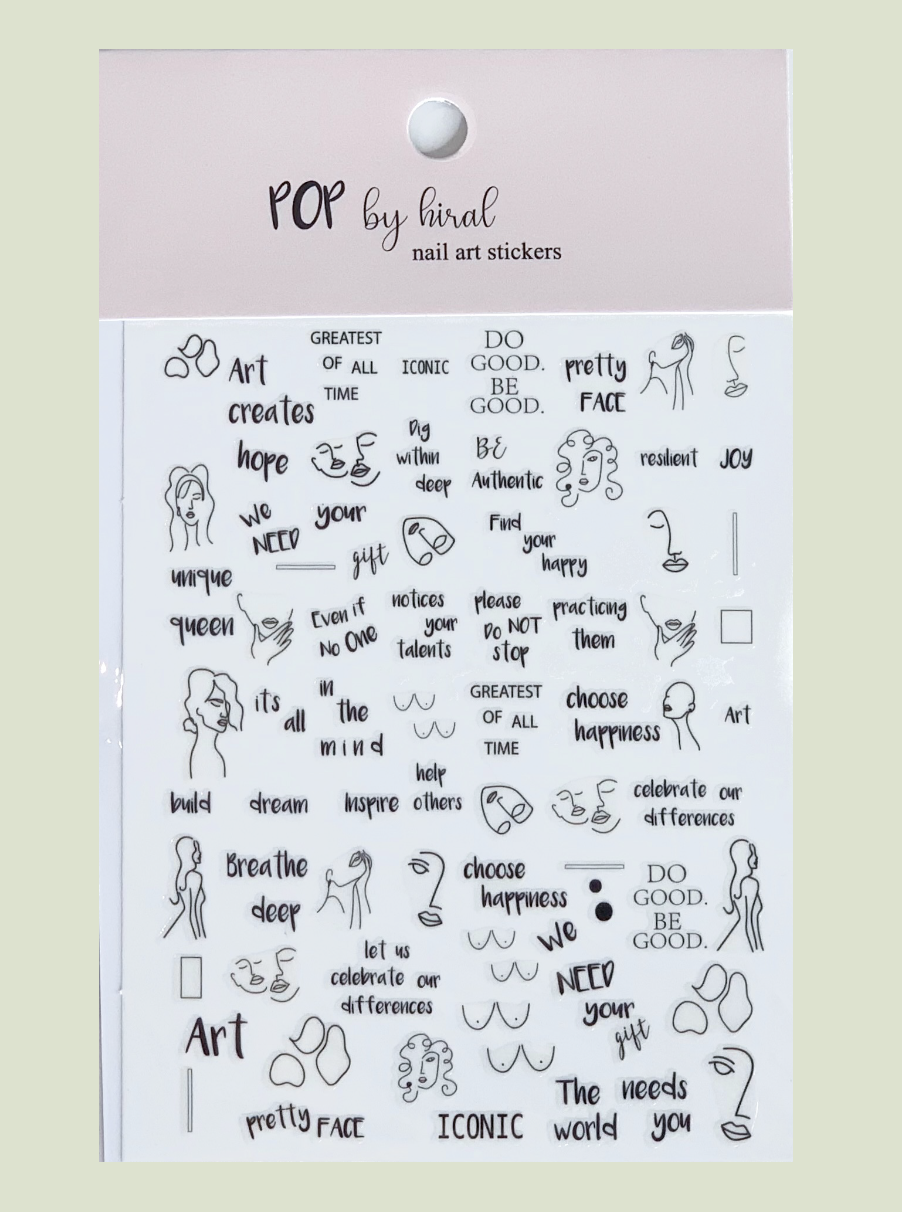 POP by hiral
nail art stickers
GREATEST
OF ALL
TIME
Art
creates
hope
ICONIC
DO
GOOD.
BE
GOOD.
pretty
FACE
Dig
within
deep
BE
Authentic
resilient
JOY
We
NEED
your
gift
Find
your
happy
unique
queen
Even if
No One
notices
your
talents
please
Do NOT
stop
practicing
them
it's
all
in
the
mind
GREATEST
OF ALL
TIME
choose
happiness
Art
build
dream
Inspire
help
others
celebrate our
differences
Breathe
deep
choose
happiness
DO
GOOD.
BE
GOOD.
let us
celebrate our
differences
We
NEED
your
gift
Art
pretty FACE
ICONIC
The needs
world you